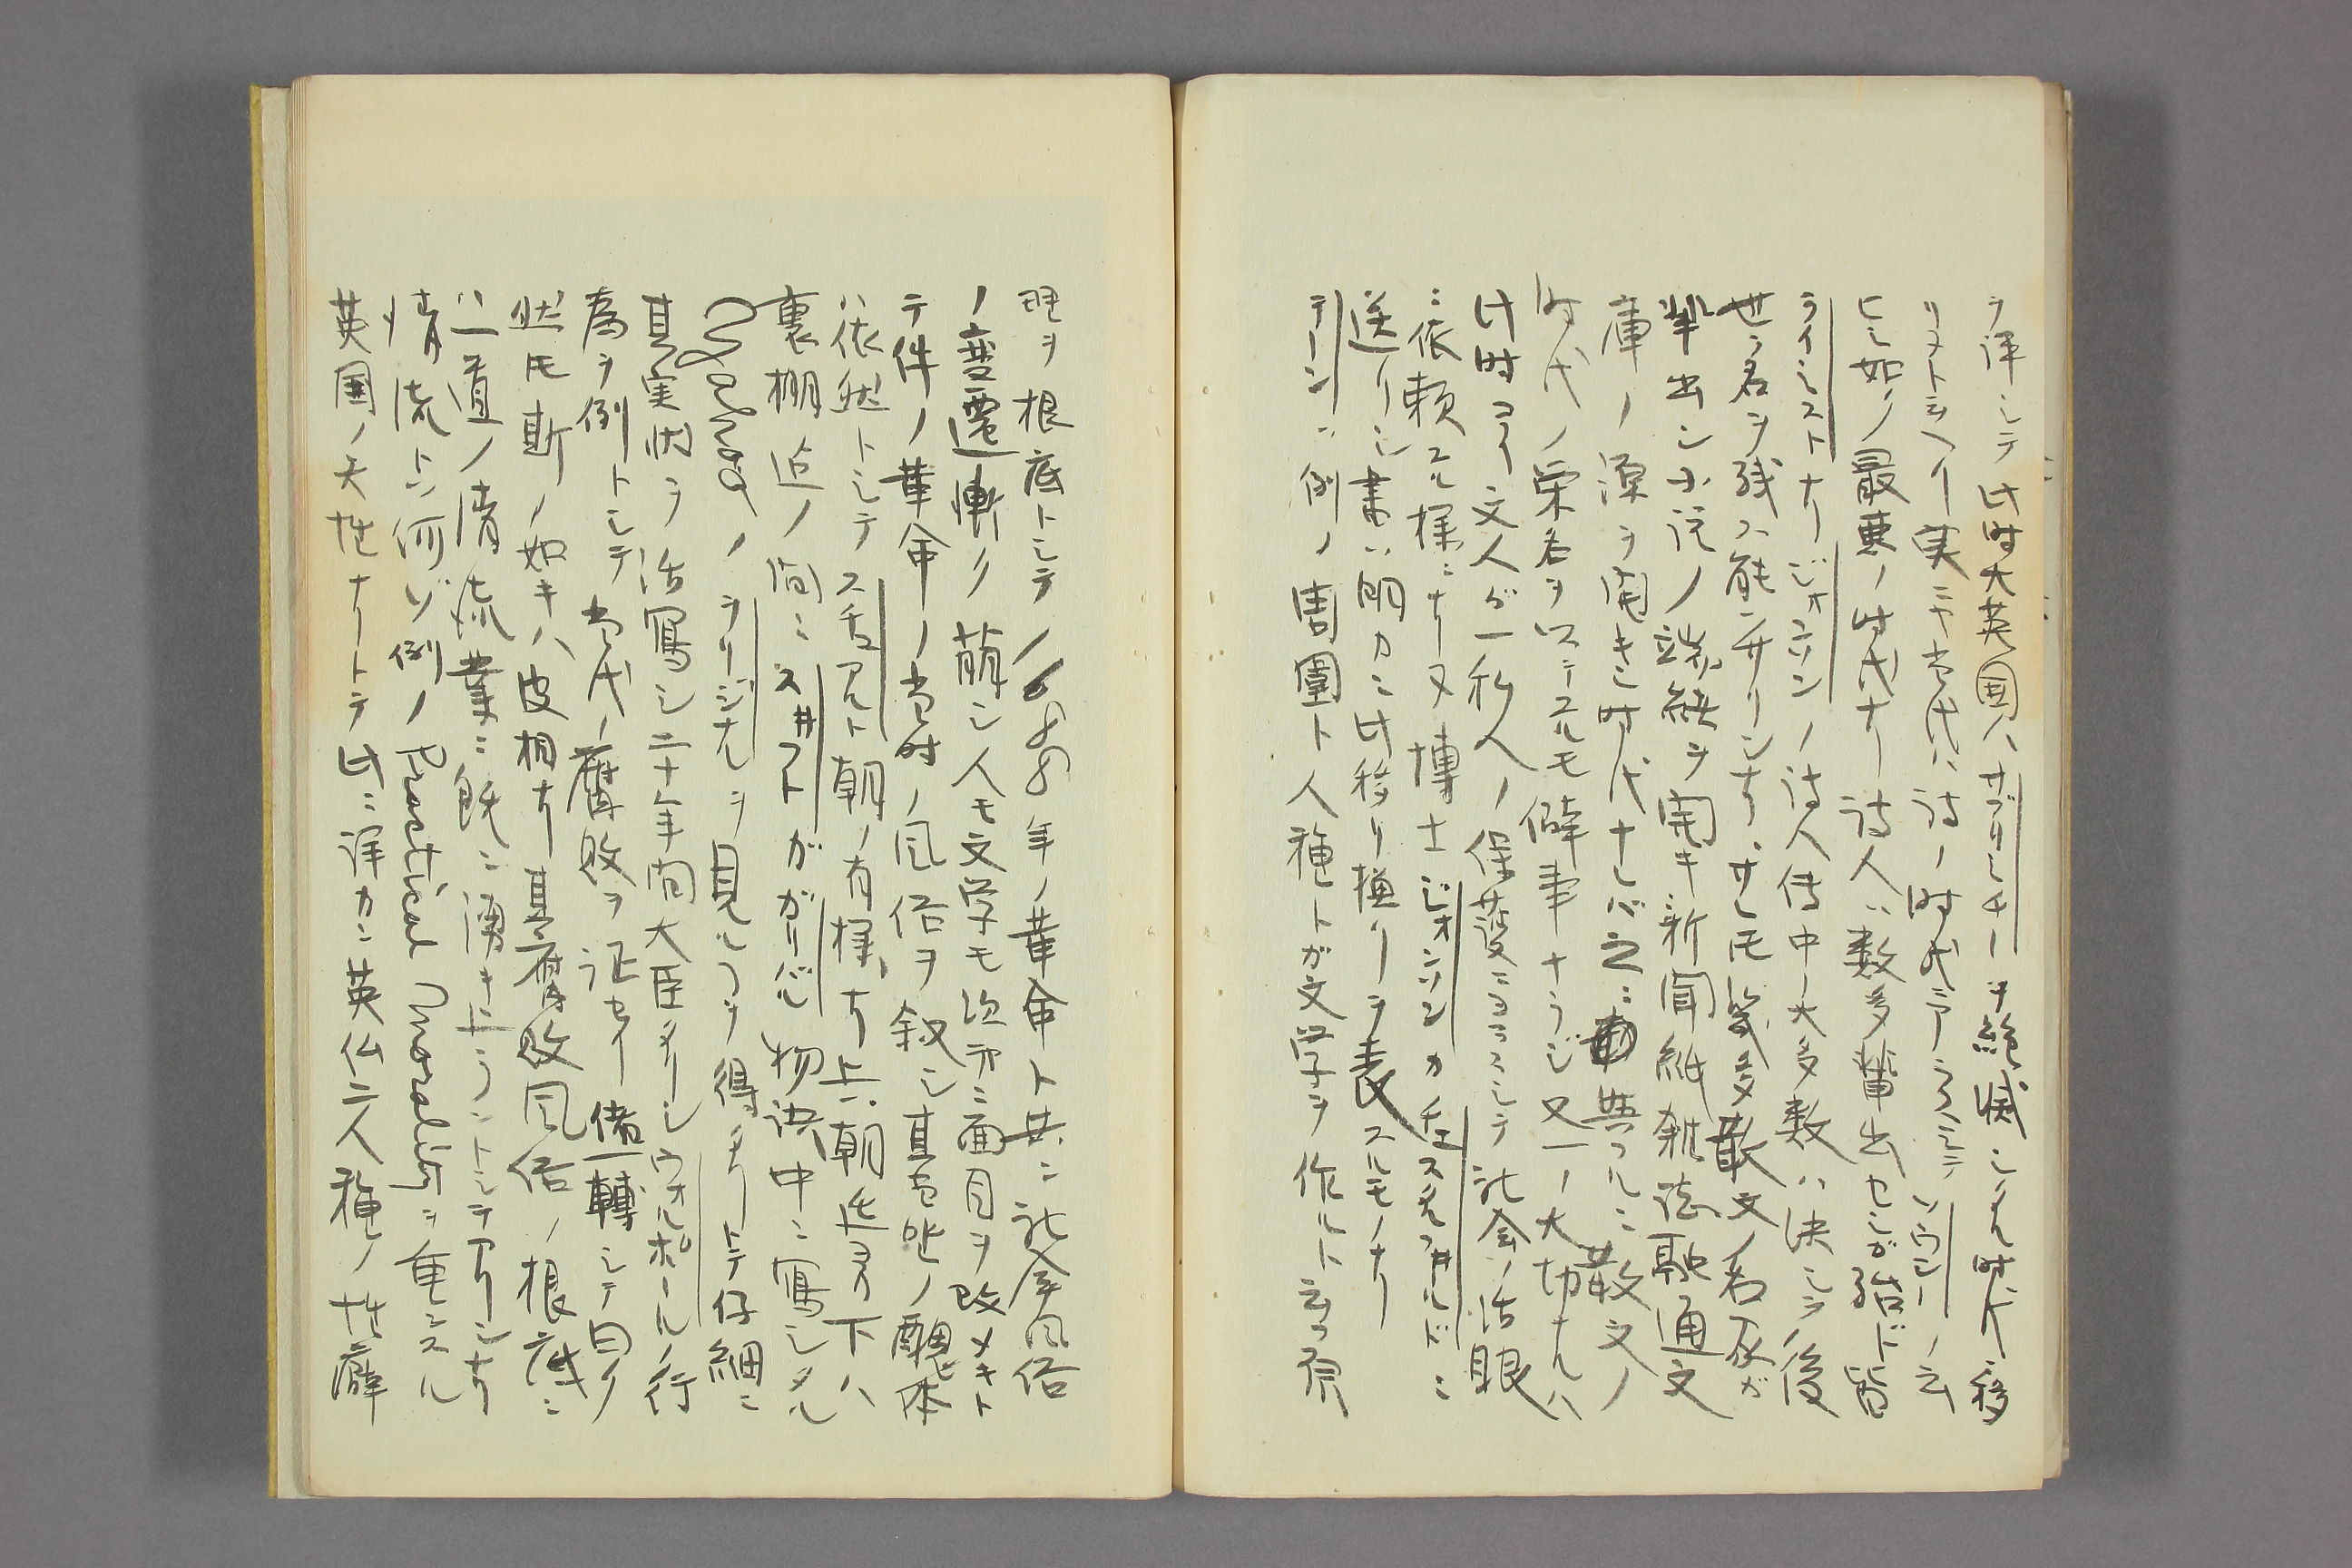 ヲ評シテ此時大英国ハサブリミチーヲ絶滅シタル時代ト移
リタト云ヘリ実ニヤ当代ハ詩ノ時代ニアラズシテソウシーノ云
ヒシ如ク最悪ノ時代ナリ詩人ハ数多輩出セシガ殆ド皆
ライミストナリジョンソンノ詩人伝中ノ大多数ハ決シテ後
世ニ名ヲ残ス能ハザリシナリ、サレ𪜈幾多散文ノ名家ガ
輩出シ小説ノ端緒ヲ開キ新聞紙雑誌融通文
庫ノ源ヲ開キシ時代ナレバ之ニ与フルニ散文ノ
時代ノ栄名ヲ以テスルモ僻事ナラジ又一ノ大切ナルハ
此時ヨリ文人ガ一私人ノ保護ニヨラズシテ社会ノ活眼
ニ依頼スル様ニナリヌ博士ジョンソンカチェスタフィールドニ
送リシ書ハ明カニ此移リ換リヲ表スルモノナリ
テーンハ例ノ周囲ト人種トガ文学ヲ作ルト云フ原
理ヲ根底トシテ1688年ノ革命ト共ニ社会風俗
ノ変遷漸ク萌シ人モ文学モ次第ニ面目ヲ改メキト
テ件ノ革命ノ当時ノ風俗ヲ叙シ其当世ノ醜体
ハ依然トシテスチュアルト朝ノ有様ナリ上ハ朝廷ヨリ下ハ
裏棚辺ノ間ニスヰフトガガリバル物語中ニ写シタル
ノヲリジナルヲ見ルコヲ得タリトテ仔細ニ
其実状ヲ活写シ二十年間大臣タリシウォルポールノ行
為ヲ例トシテ当代ノ腐敗ヲ証セリ借一轉シテ曰ク
然𪜈斯ノ如キハ皮相ナリ其腐敗風俗ノ根底ニ
ハ一道ノ清流業ニ既ニ湧キ出ラントシテアリシナリ
清流トハ何ゾ例ノPractical Moralityヲ重ンズル
英国ノ天性ナリトテ此ニ詳カニ英仏二人種ノ性癖